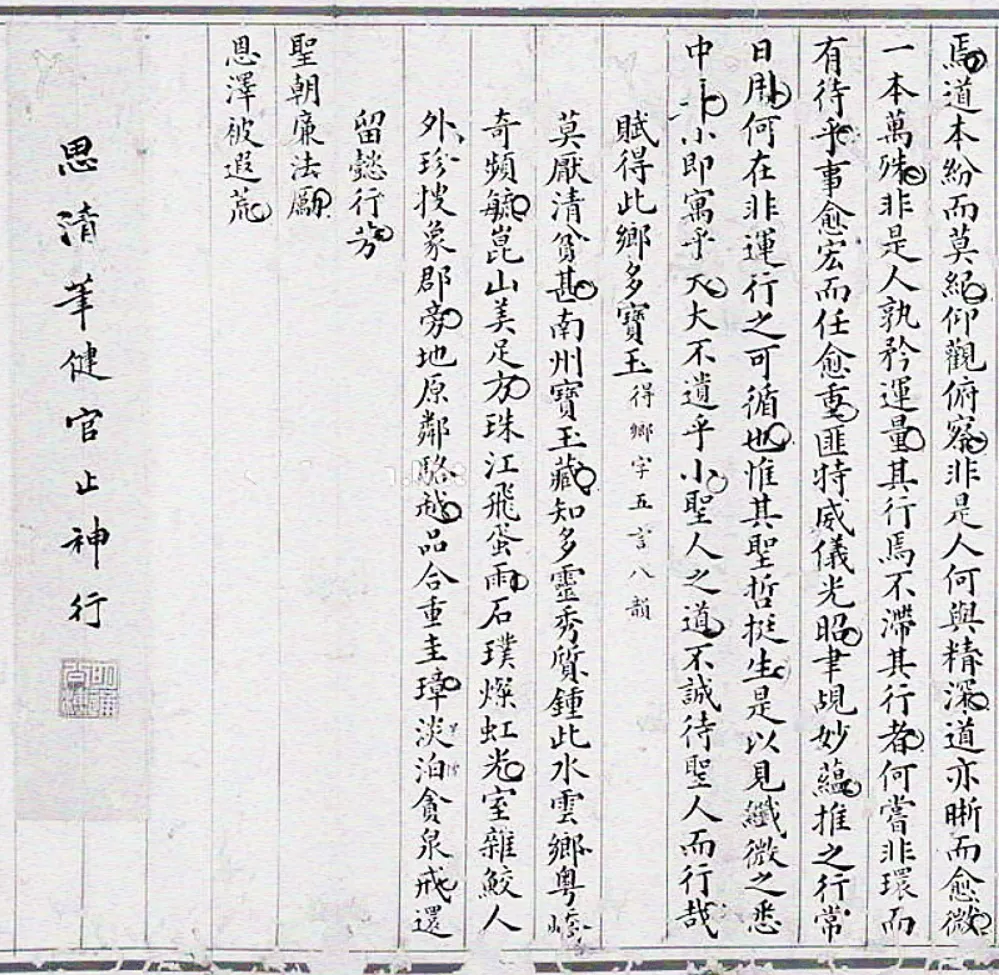 焉道本紛而莫紀仰觀俯察非是人何與精深道亦晰而愈微
一本萬殊非是人孰矜運量其行焉不滯其行者何嘗非環而
有待乎事愈宏而任愈重匪特威儀光昭聿覘妙蘊推之行常
日用何在非運行之可循也惟其聖哲挺生是以見纖微之悉
中小即寓乎大大不遺乎小聖人之道不誠待聖人而行哉
賦得此鄉多寶玉得鄉字五言八韻
莫厭清貧甚南州寶玉藏知多靈秀質鍾此水雲鄉粵嶠
奇頻毓崑山美足方珠江飛蜑雨石璞燦虹光室雜鮫人
外珍搜象郡旁地原鄰駱越品合重圭璋淡泊貪泉戒還
留懿行芳
聖朝廉法勵
恩澤被遐荒
思清筆健官止神行